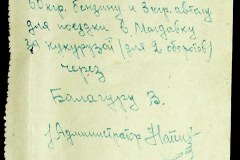 60 кгр. бензину и 3 кгр. автолу
для поездки в Молдавку
за кукурузой (для 2 оборотов)
через
Балагуру В.
/Администратор